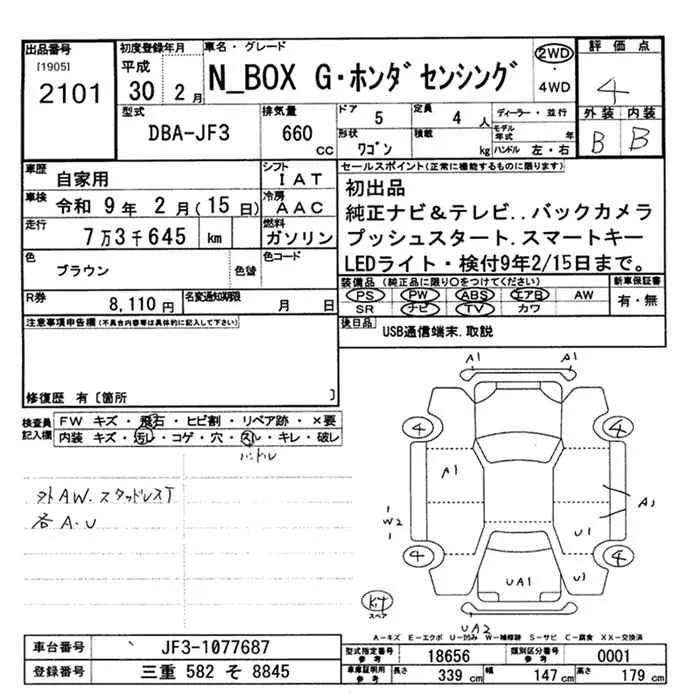 出品番号 [1905] 2101
初度登録年月 平成 30 2月
車名・グレード N_BOX G・ホンダセンシング
2WD・4WD
評価点 4
外装 B 内装 B
型式 DBA-JF3
排気量 660 cc
ドア 5
定員 4 人
形状 ワゴン
積載 kg
ディーラー・並行
モデル年式 年
ハンドル 左・右
車歴 自家用
シフト IAT
車検 令和 9年 2月(15日)
冷房 AAC
走行 7万3千645 km
燃料 ガソリン
色 ブラウン 色替
色コード
R券 8,110円
名変通知期限 月 日
セールスポイント(正常に機能するものに限ります)
初出品
純正ナビ&テレビ..バックカメラ
プッシュスタート.スマートキー
LEDライト・検付9年2/15日まで。
装備品 (純正品に限り○をつけてください)
PS PW ABS エアB AW
SR ナビ TV カワ
新車保証書 有・無
後日品 USB通信端末.取説
注意事項申告欄(不具合内容等は具体的に記入して下さい)
修復歴 有〔箇所 〕
検査員記入欄
FW キズ・飛石・ヒビ割・リペア跡・×要
内装 キズ・汚レ・コゲ・穴・スレ・キレ・破レ
ハンドル
外AW.スタッドレスT
各A.U
A1 A1
4 4
A1 A1
W2 U1
4 4
UA1 U1
UA2
スペア
A-キズ E-エクボ U-凹み W-補修跡 S-サビ C-腐食 XX-交換済
車台番号 JF3-1077687
登録番号 三重 582 そ 8845
型式指定番号 参考 18656
類別区分番号 参考 0001
車庫証明用 参考 長さ 339 cm 幅 147 cm 高さ 179 cm